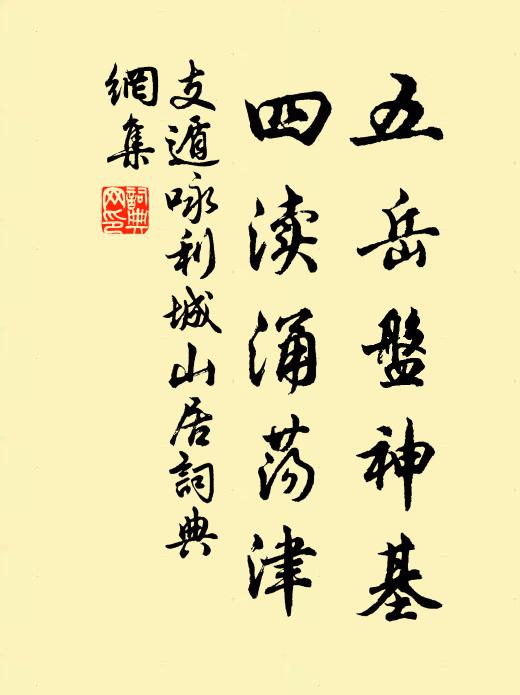 五岳盤神基
四渎涌荡津
支遁咏利城山居詞典
網集
詞典
网印